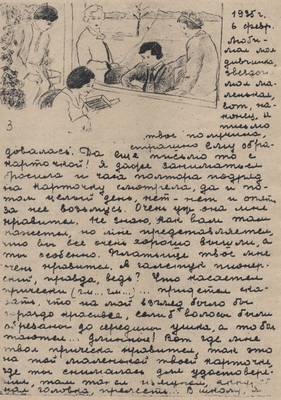 1935 г.
6 февр.
Люби-
мая моя
девчушка,
звездоч-
моя ма-
ленькая,
вот, на-
конец, и
письмо
3
твое получила,
страшно ему обра-
довалась. Да еще письмо то с
карточкой! Я даже заниматься
бросила и часа полтора подряд
на карточку смотрела, да и по-
том целый день, нет-нет и опять
за нее возьмусь. Очень уж она мне
нравится. Не знаю, как вам там
кажется, но мне представляется,
что вы все очень хорошо вышли, а
ты особенно. Платьице твое мне
очень нравится. А галстук пионер-
ский, правда, ведь? Что касается
прически (гм... гм...) ... придется ска-
зать, что на мой взгляд было бы
гораздо красивее, если б волосы были
обрезаны до середины ушка, а то бол-
таются... длинное! Вот где мне
твоя прическа нравится, так это
на той маленькой твоей карточке,
где ты снималась для удостовере-
ния, там такая
головка, прелесть... В школу, я